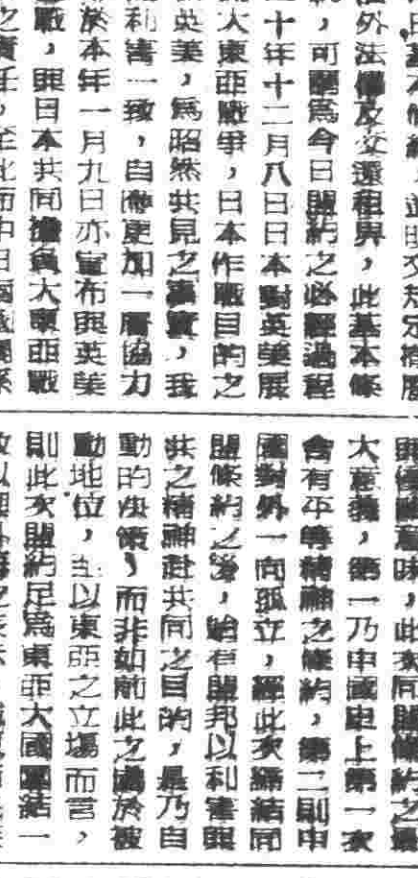 法外法權及交還租界，此基本條
約，可謂爲今日盟約之必經過程
三十年十二月八日日本對英美展
開大東亞戰爭，日本作戰目的之
英美，爲昭然共見之事實，我
利害一致，自應更加一層協力
於本年一月九日亦宣布與英美
戰，與日本共同擔負大東亞戰
之責任，至此而中日兩國關係
與侵略意味，此次同盟條約之最
大意義，第一乃中國史上第一次
會有平等精神之條約，第二則中
國對外一向孤立，經此次締結同
盟條約之後，始有盟邦以利害與
共之精神赴共同之目的，是乃自
動的決策，而非如前此之過於被
動地位，以東亞之立場而言，
則此次盟約足爲東亞大國團結一